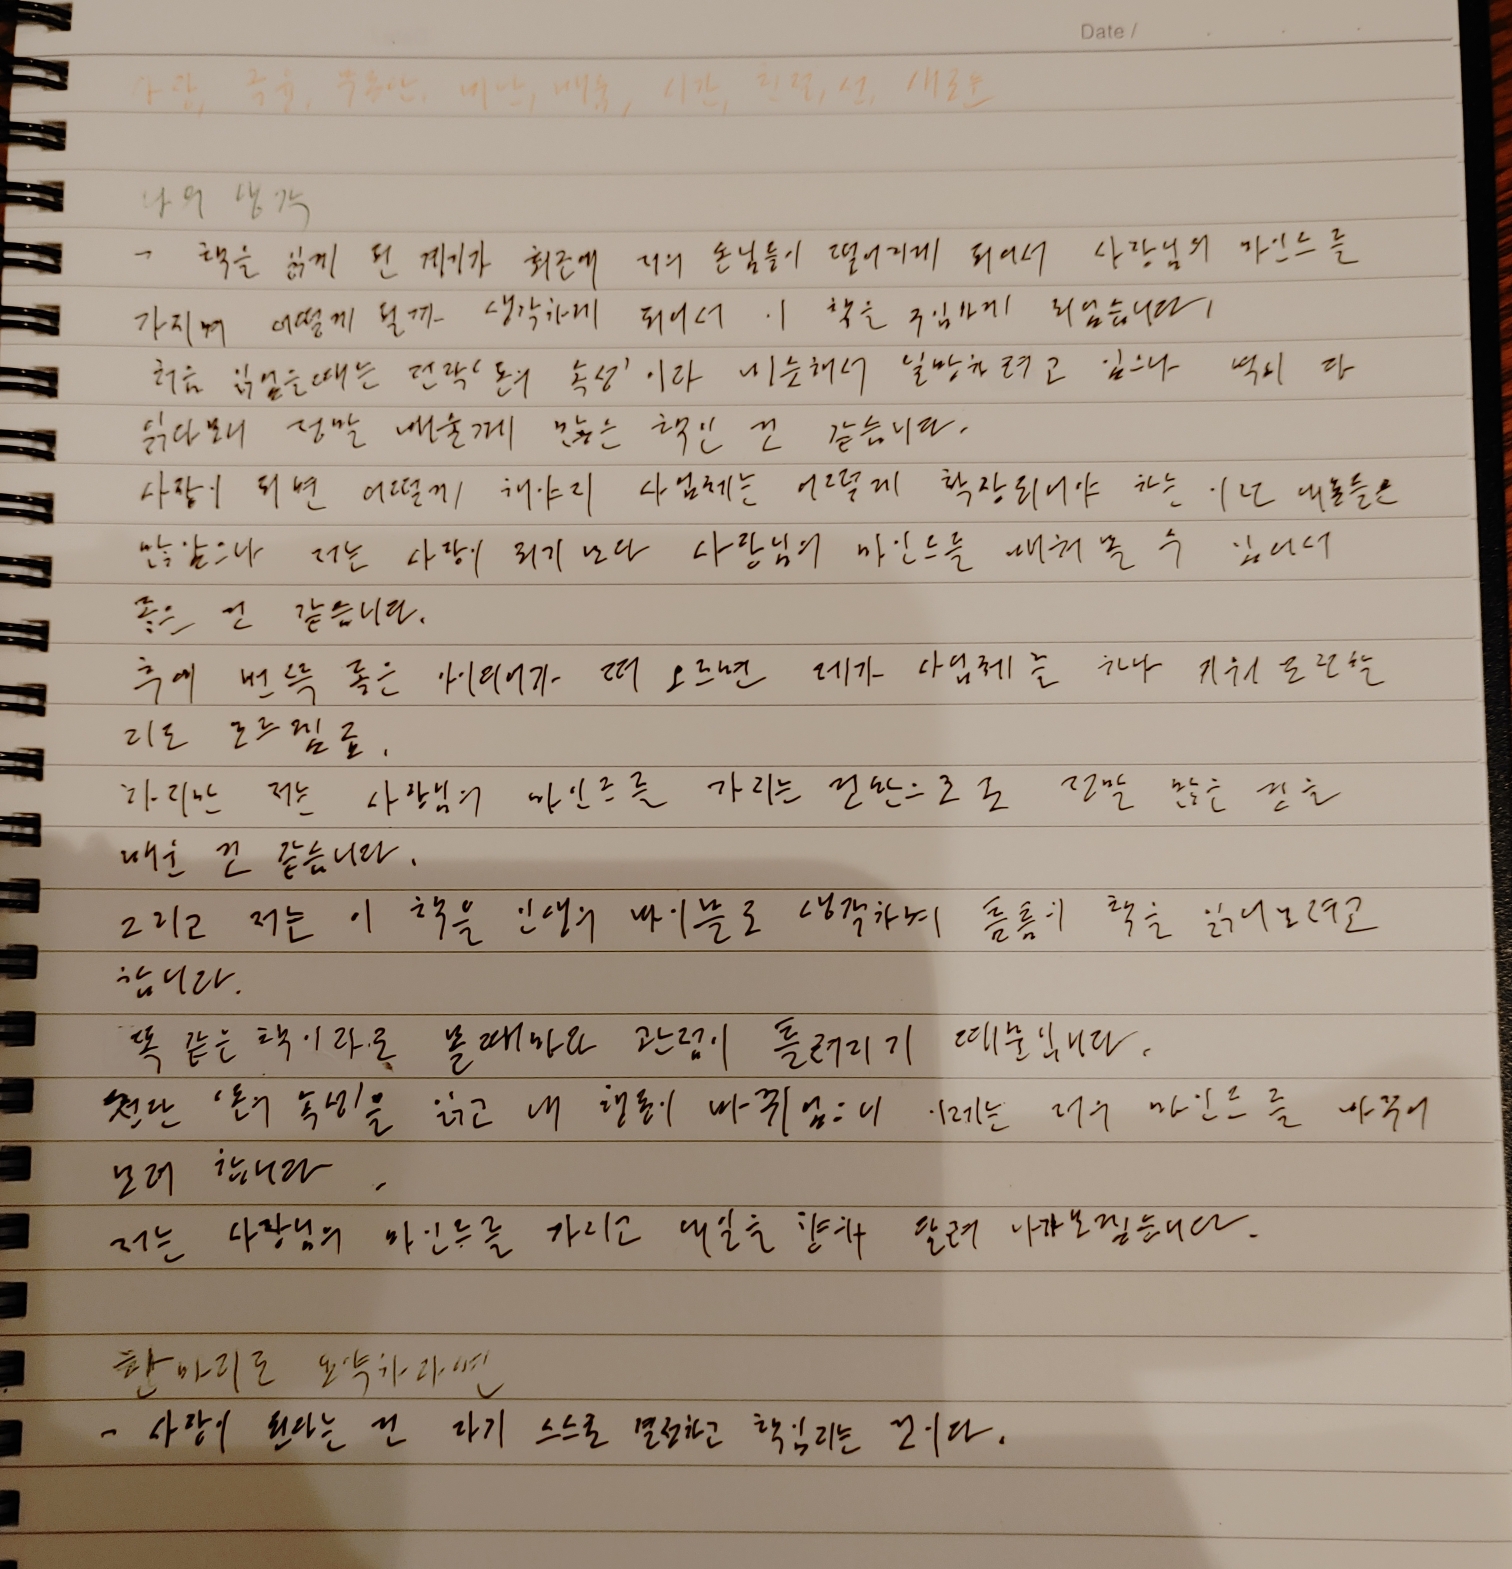 Date /
나의 생각
- 책을 읽게 된 계기가 최근에 저의 손님들이 떨어지게 되어서 사장님의 마인드를
가지며 어떻게 될까 생각하게 되어서 이 책을 구입하게 되었습니다.
처음 읽었을때는 전작 '돈의 속성'이랑 비슷해서 실망하려고 했으나 역시 다
읽다보니 정말 배울게 많은 책인 건 같습니다.
사장이 되면 어떻게 해야지 사업체는 어떻게 확장되어야 하는 이런 내용들은
많았으나 저는 사장이 되기 보다 사장님의 마인드를 배워볼 수 있어서
좋은 건 같습니다.
후에 번뜩 좋은 아이디어가 떠 오르면 제가 사업체를 하나 키워
지도 모르겠 요.
하지만 저는 사장님의 마인드를 가지는 것만으로도 정말 많은 것을
배운 건 같습니다.
그리고 저는 이 책을 인생의 바이블로 생각하며 틈틈이 책을 읽어보려고
합니다.
똑 같은 책이라도 볼때마다 관점이 틀려지기 때문입니다.
전작 '돈의 속성'을 읽고 내 행동이 바뀌었으니 이제는 저의 마인드를 바꾸어
보려 합니다.
저는 사장님의 마인드를 가지고 내일을 향해 달려 나가보겠습니다.
한마디로 요약하라면
- 사장이 된다는 건 자기 스스로 결정하고 책임지는 것이다.